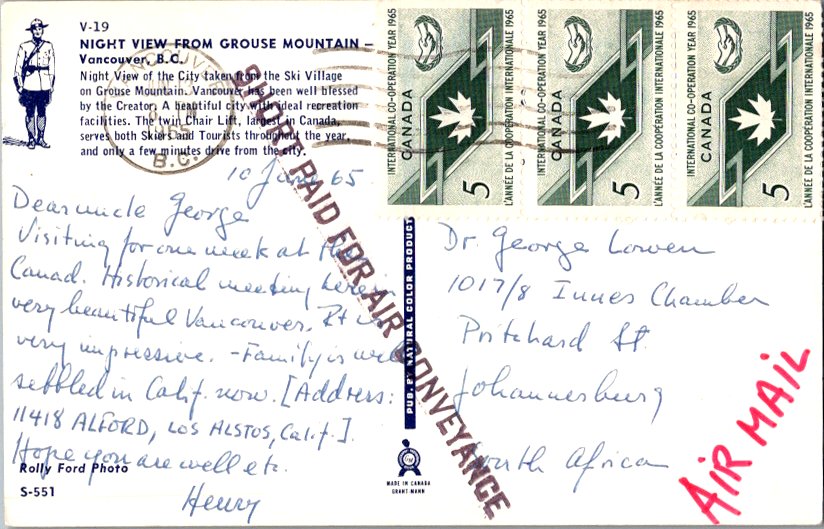 V-19
NIGHT VIEW FROM GROUSE MOUNTAIN –
Vancouver, B.C.
Night View of the City taken from the Ski Village
on Grouse Mountain. Vancouver has been well blessed
by the Creator. A beautiful city with ideal recreation
facilities. The twin Chair Lift, largest in Canada,
serves both Skiers and Tourists throughout the year,
and only a few minutes drive from the city.
VANCOUVER
B.C.
10 June 65
Dear uncle George
Visiting for one week at the
Canad. Historical meeting here in
very beautiful Vancouver. It is
very impressive. - Family is well
settled in Calif. now. [Address:
11418 ALFORD, LOS ALSTOS, Calif.].
Hope you are well etc.
Henry
Rolly Ford Photo
S-551
SHORT PAID FOR AIR CONVEYANCE
PUB. BY NATURAL COLOR PRODUCT
MADE IN CANADA
GRANT-MANN
INTERNATIONAL CO-OPERATION YEAR 1965
CANADA
5
L'ANNÉE DE LA COOPÉRATION INTERNATIONALE 1965
INTERNATIONAL CO-OPERATION YEAR 1965
CANADA
5
L'ANNÉE DE LA COOPÉRATION INTERNATIONALE 1965
INTERNATIONAL CO-OPERATION YEAR 1965
CANADA
5
L'ANNÉE DE LA COOPÉRATION INTERNATIONALE 1965
Dr. George Lowen
1017/8 Innes Chamber
Pritchard St.
Johannesburg
South Africa
AIR MAIL